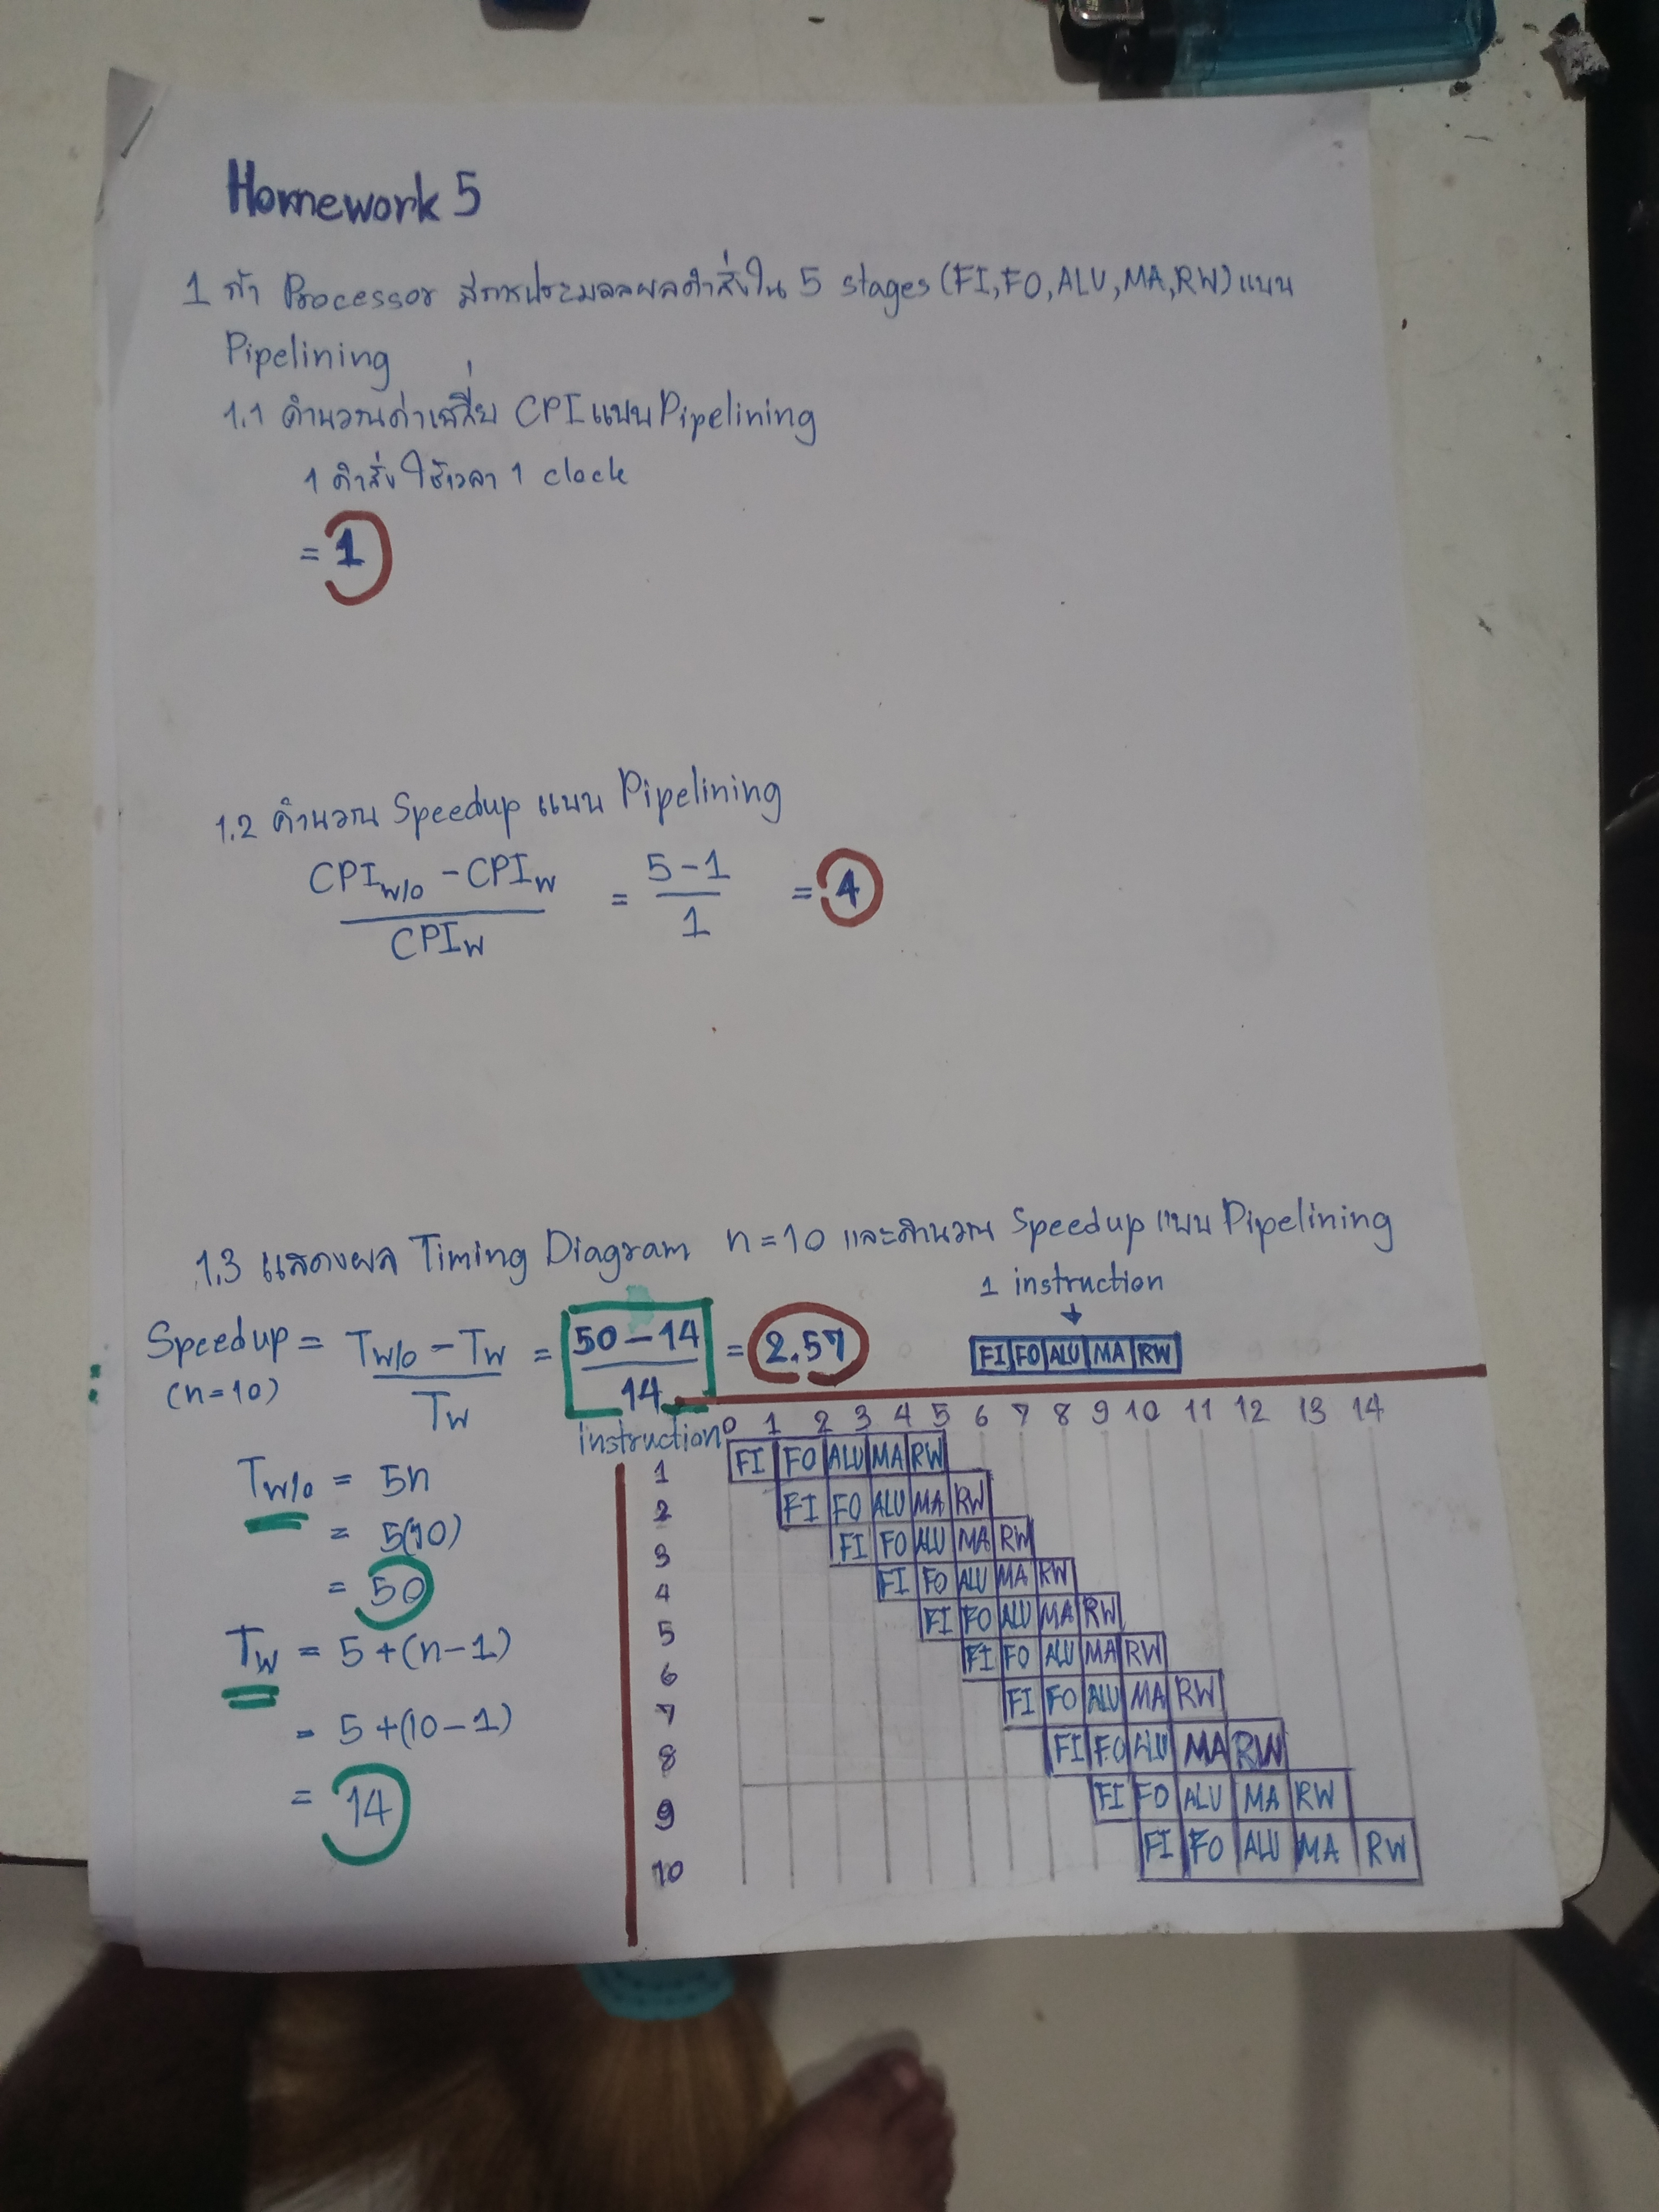 Homework 5
1 ถ้า Processor มีการประมวลผลคำสั่งใน 5 stages (FI, FO, ALU, MA, RW) แบบ
Pipelining
1.1 คำนวณค่าเฉลี่ย CPI แบบ Pipelining
1 คำสั่ง ใช้เวลา 1 clock
= 1
1.2 คำนวณ Speedup แบบ Pipelining
CPIw/o - CPIw / CPIw = 5-1 / 1 = 4
1.3 แสดงผล Timing Diagram n=10 และคำนวณ Speedup แบบ Pipelining
1 instruction
FI FO ALU MA RW
Speedup = Tw/o - Tw / Tw = 50-14 / 14 = 2.57
(n=10)
Tw/o = 5n
= 5(10)
= 50
Tw = 5+(n-1)
= 5+(10-1)
= 14
instruction 0 1 2 3 4 5 6 7 8 9 10 11 12 13 14
1 FI FO ALU MA RW
2 FI FO ALU MA RW
3 FI FO ALU MA RW
4 FI FO ALU MA RW
5 FI FO ALU MA RW
6 FI FO ALU MA RW
7 FI FO ALU MA RW
8 FI FO ALU MA RW
9 FI FO ALU MA RW
10 FI FO ALU MA RW